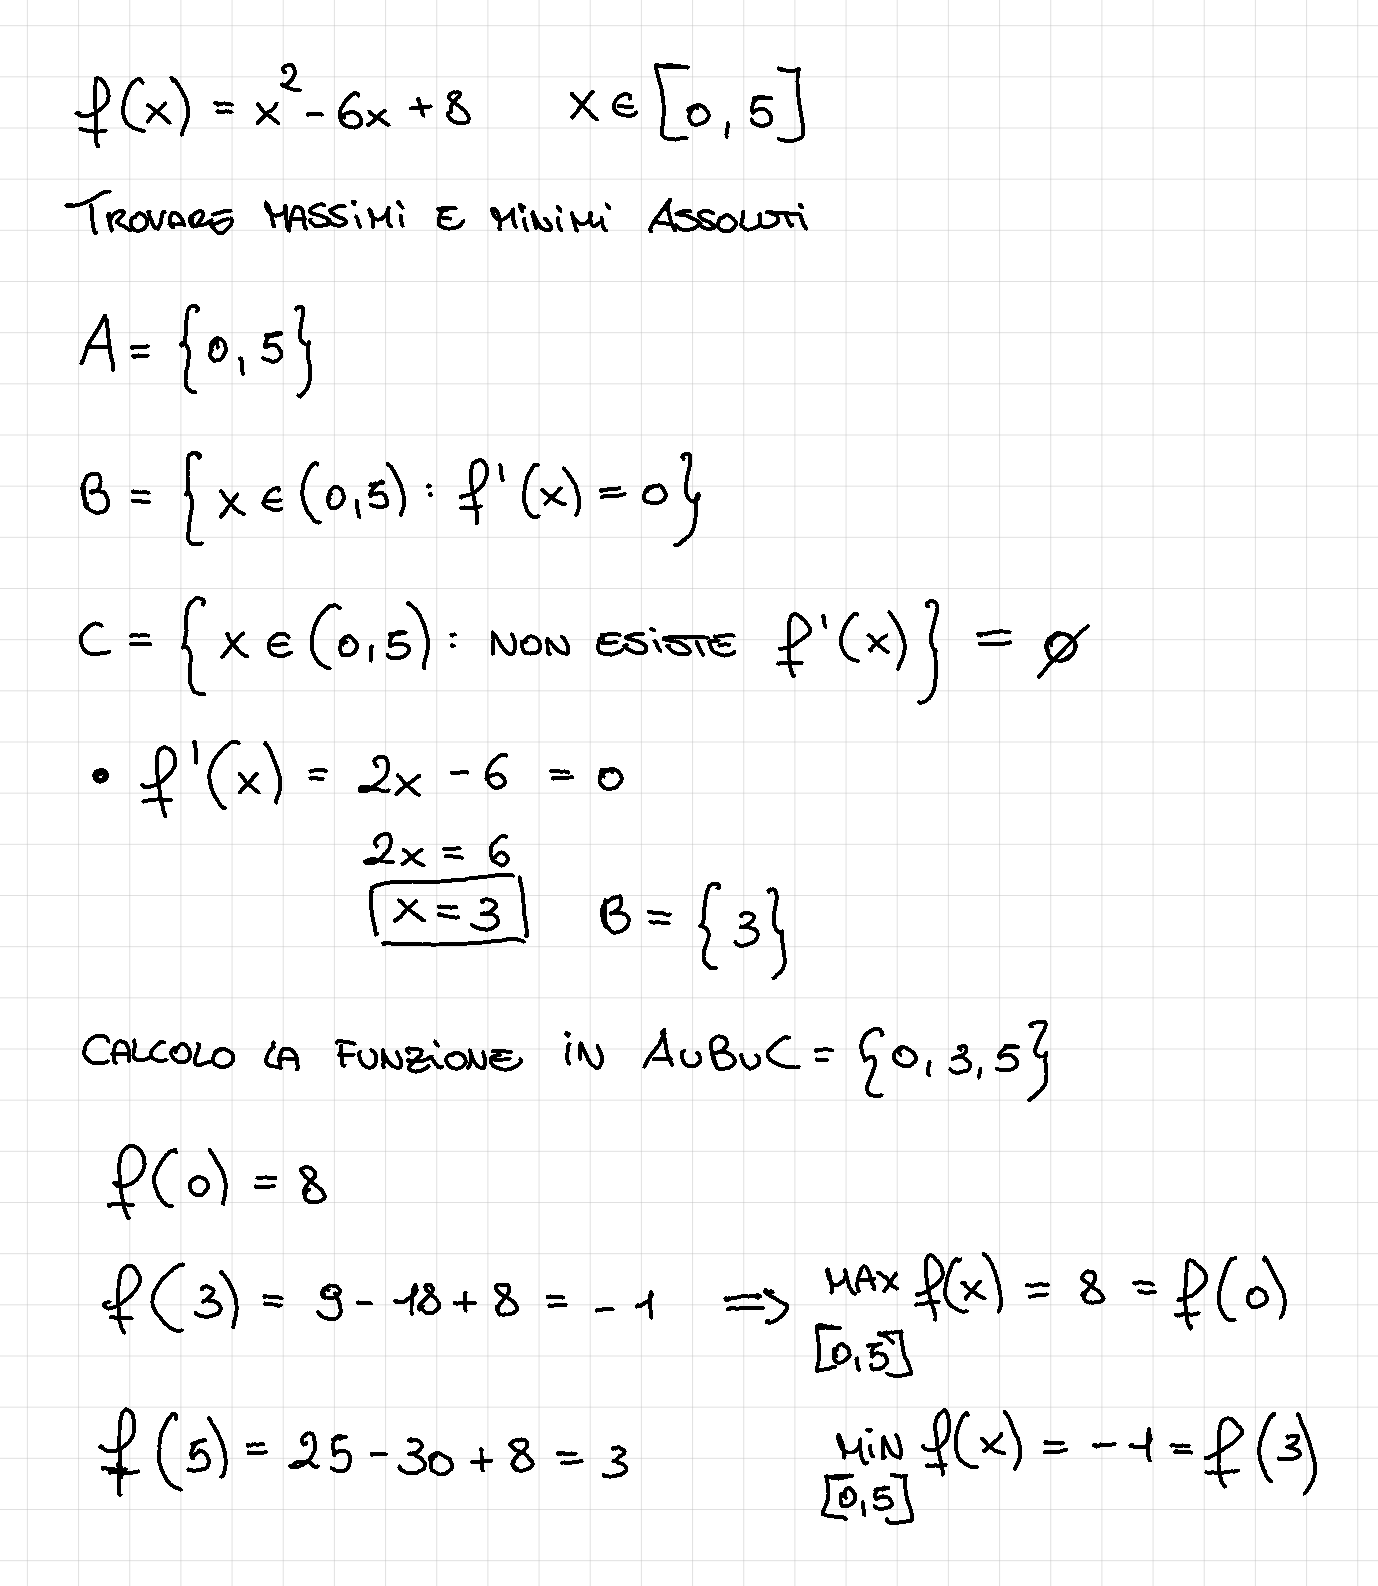 f(x) = x² - 6x + 8   x ∈ [0, 5]
TROVARE MASSIMI E MINIMI ASSOLUTI
A = {0, 5}
B = {x ∈ (0,5) : f'(x) = 0}
C = {x ∈ (0,5) : NON ESISTE f'(x)} = ∅
• f'(x) = 2x - 6 = 0
2x = 6
x = 3   B = {3}
CALCOLO LA FUNZIONE IN A∪B∪C = {0, 3, 5}
f(0) = 8
f(3) = 9 - 18 + 8 = -1 ⇒ MAX f(x) = 8 = f(0)
[0,5]
f(5) = 25 - 30 + 8 = 3   MIN f(x) = -1 = f(3)
[0,5]